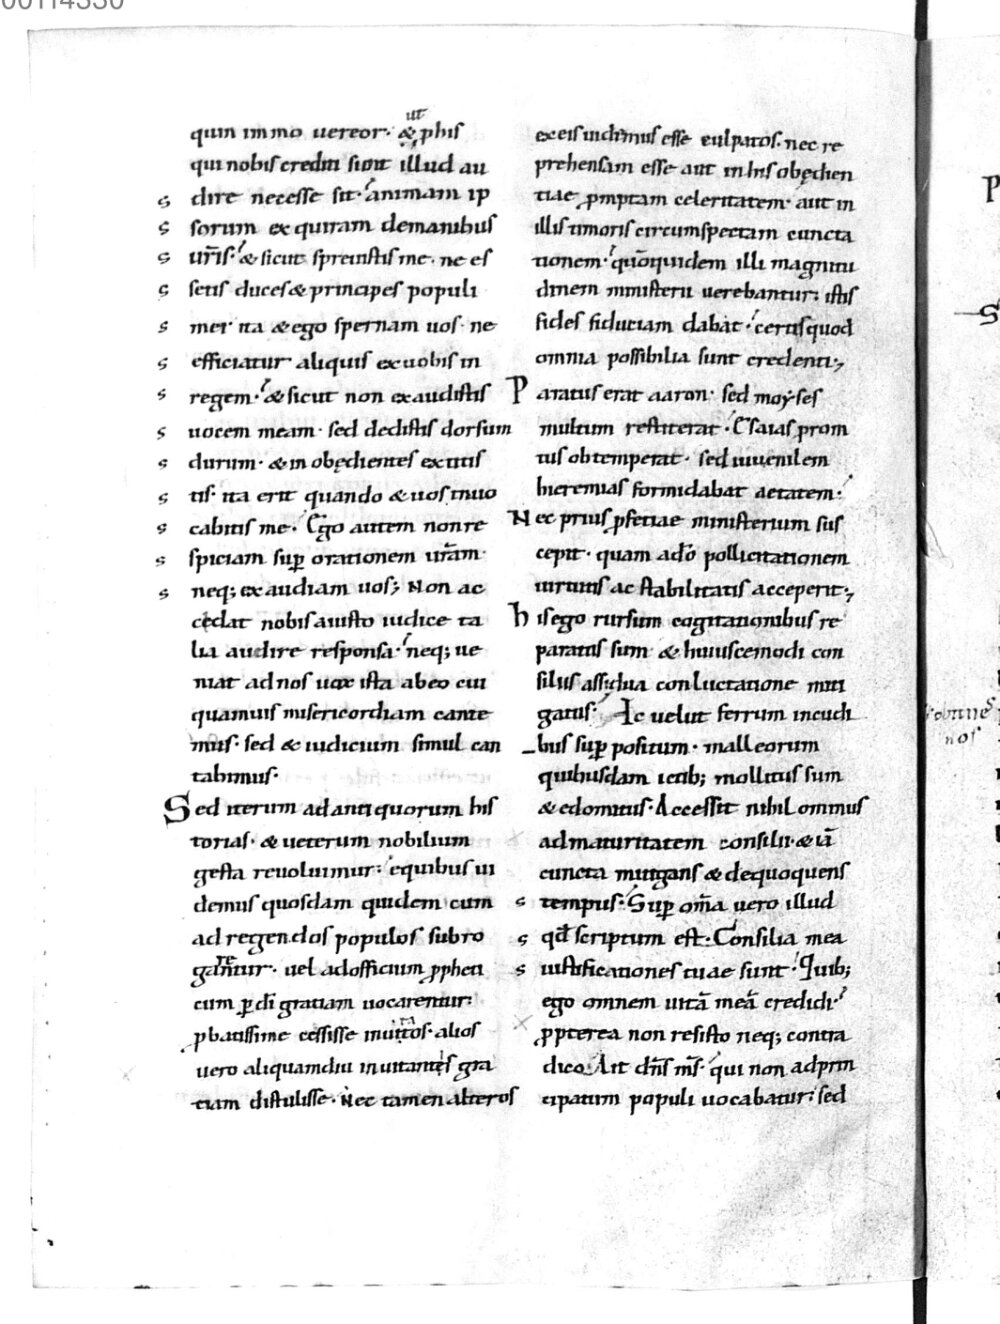 00114330
ut
quin immo uereor· & phis
qui nobis crediti sunt illud au
s dire necesse sit· animam ip
s sorum exquiram demanibus
s ur̄is· & sicut spreuistis me· ne es
s setis duces & principes populi
s mei· ita & ego spernam uos· ne
s efficiatur aliquis ex uobis in
s regem· & sicut non exaudistis
s uocem meam· sed dedistis dorsum
s durum· & inobędientes extitis
s tis· ita erit quando & uos inuo
s cabitis me· Ego autem non re
s spiciam sup̱ orationem ur̄am·
s neq; exaudiam uos; Non ac
cędat nobis a iusto iudice ta
lia audire responsa· neq; ue
niat ad nos uox ista ab eo cui
quamuis misericordiam cante
mus· sed & iudicium simul can
tabimus·
Sed iterum ad antiquorum his
torias· & ueterum nobilium
gesta reuoluimur· e quibus ui
demus quosdam quidem cum
ad regendos populos subro
re
gantur· uel ad officium ꝓpheti
cum ꝑ di gratiam uocarentur·
ꝓbatissime cessisse inuitos· alios
uero aliquamdiu inuitantes gra
tiam distulisse· Nec tamen alteros
ex eis uidimus esse culpatos· nec re
prehensam esse aut in his obędien
tiae ꝓmptam celeritatem· aut in
illis timoris circumspectam cuncta
tionem· quōquidem illi magnitu
dinem ministerii uerebantur· istis
fides fiduciam dabat· certis quod
omnia possibilia sunt credenti;
Paratus erat aaron· sed moyses
multum restiterat· Esaias prom
tus obtemperat· sed iuuenilem
hieremias formidabat aetatem·
Nec prius ꝓfetiae ministerium sus
cepit· quam a dō pollicitationem
uirtutis ac stabilitatis acceperit;
his ego rursum cogitationibus re
paratus sum & huiuscemodi con
siliis assidua conluctatione miti
gatus· Ac uelut ferrum incudi
bus sup̱ positum· malleorum
quibusdam ictib; mollitus sum
& edomitus· Accessit nihilominus
ad maturitatem consilii· & uā
cuncta mitigans & de quoquens
s tempus· Sup̱ om̄a uero illud
s qd̄ scriptum est· Consilia mea
s iustificationes tuae sunt· Quib;
ego omnem uitā meā credidi·
ꝓpterea non resisto neq; contra
dico· Ait dn̄s m̄s· qui non ad prin
cipatum populi uocabatur· sed